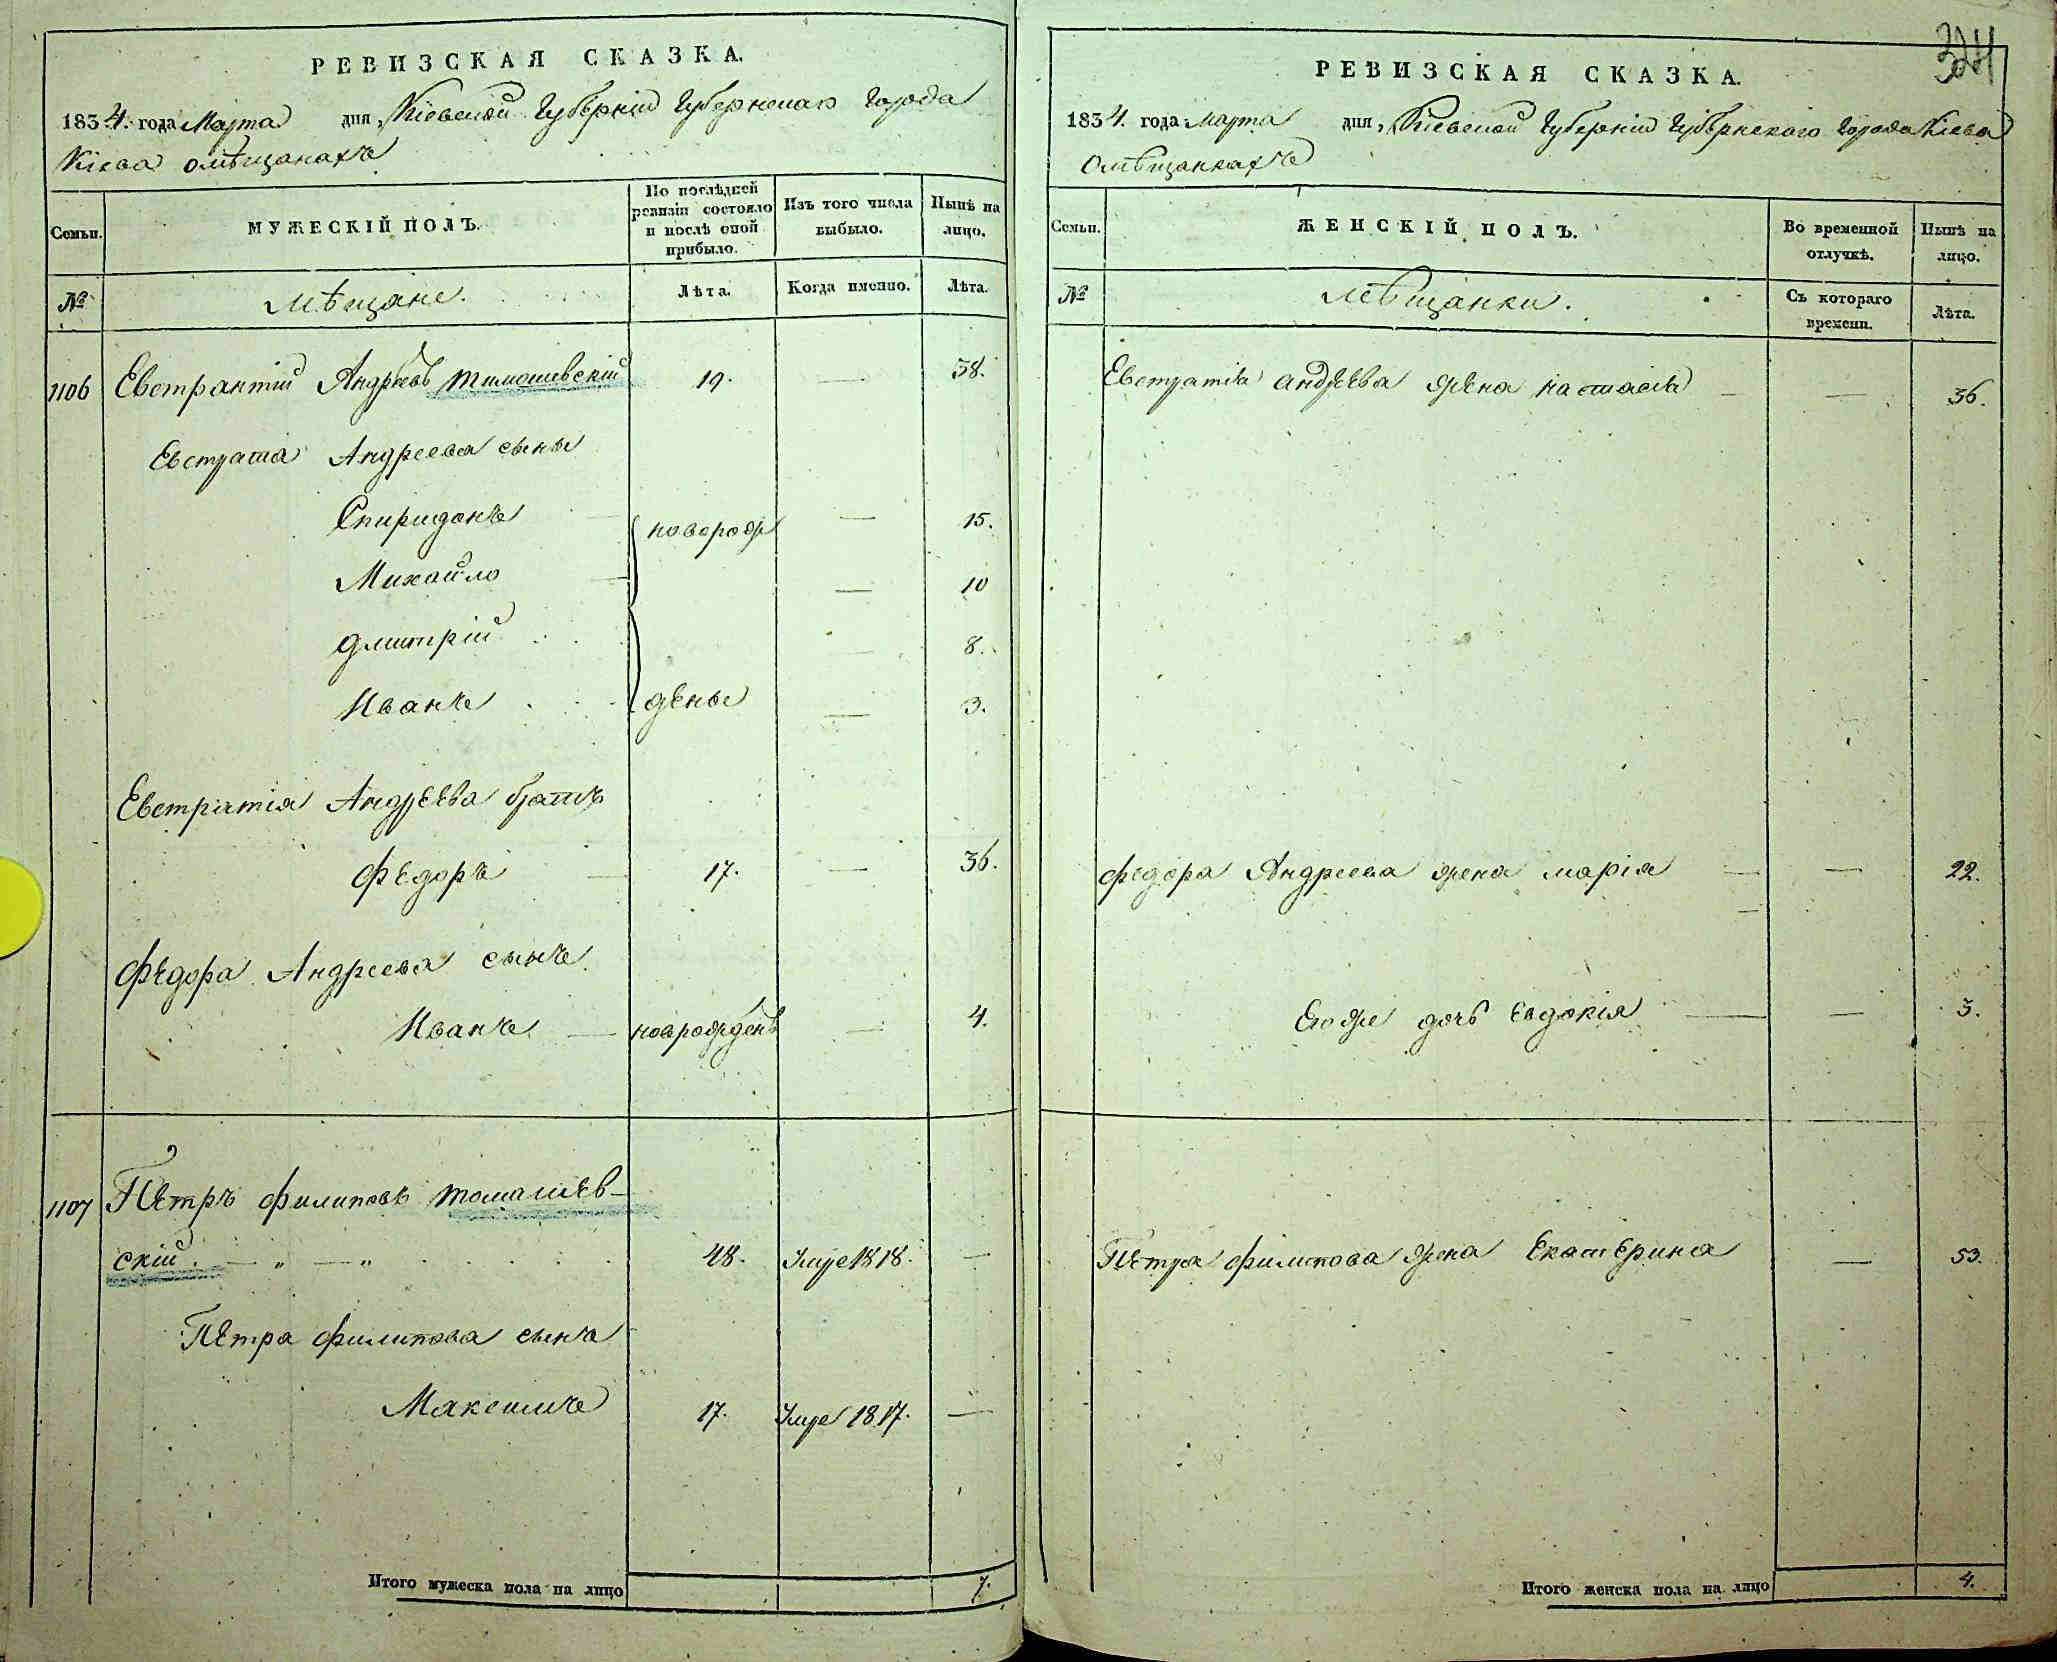 РЕВИЗСКАЯ СКАЗКА.
1834. года Марта дня, Кіевской Губерніи Губернскаго Города
Кіева о мѣщанахъ
Семьи.
МУЖЕСКІЙ ПОЛЪ.
По послѣдней ревизіи состояло и послѣ оной прибыло.
Изъ того числа выбыло.
Нынѣ на лицо.
№
Мѣщане.
Лѣта.
Когда именно.
Лѣта.
1106 Евстратій Андрѣевъ Тимошевскій 19. — 38.
Евстрата Андреева сыны
Спиридонъ новорож — 15.
Михайло — 10
Дмитрій — 8.
Иванъ дены — 3.
Евстратія Андрѣева братъ
Федоръ 17. — 36.
Федора Андреева сынъ
Иванъ — новорожденъ — 4.
1107 Петръ Филиповъ Томашев-
скій. — „ — „ 48. Умре 1818. —
Петра Филипова сынъ
Максимъ 17. Умре 1817. —
Итого мужеска пола на лицо 7.
324
РЕВИЗСКАЯ СКАЗКА.
1834. года марта дня, Кіевской Губерніи Губернского Города Кіева
О мѣщанкахъ
Семьи.
ЖЕНСКІЙ ПОЛЪ.
Во временной отлучкѣ.
Нынѣ на лицо.
№
Мѣщанки.
Съ котораго времени.
Лѣта.
Евстратія Андреева жена Настасія — — 36.
Федора Андреева жена Марія — — 22.
Егоже дочь Евдокія — — 3.
Петра Филипова жена Екатерина — 53.
Итого женска пола на лицо 4.